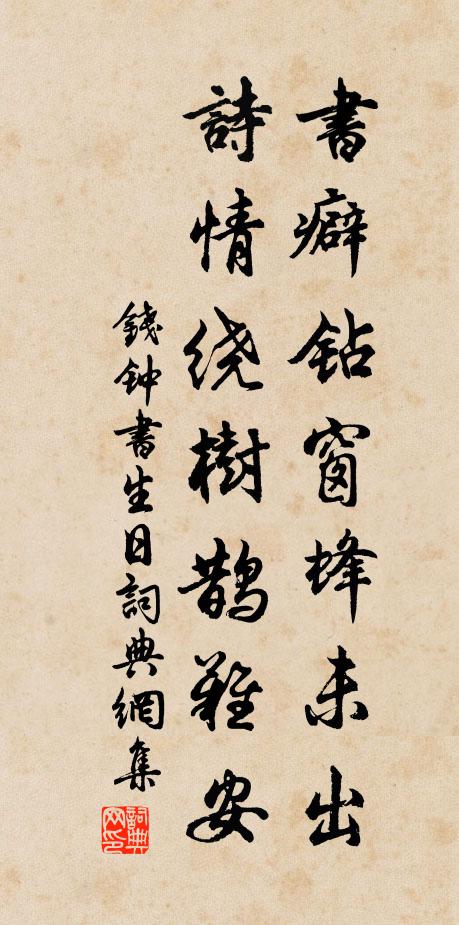 書癖鉆窗蜂未出
詩情绕樹鵲難安
錢钟書生日詞典網集
詞典網印